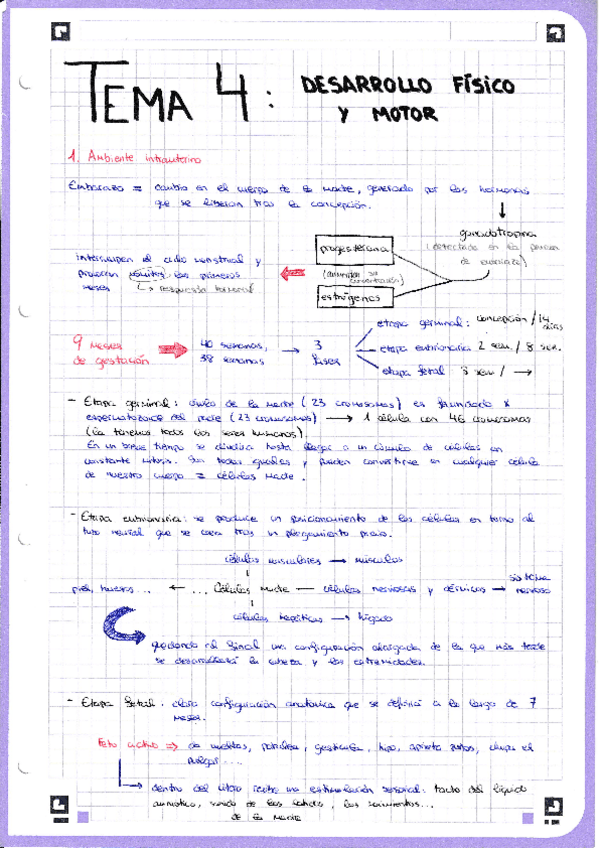 TEMA 4: DESARROLLO FÍSICO
Y MOTOR
1. Ambiente intrauterino
Embarazo = cambio en el cuerpo de la madre, generado por las hormonas
que se liberan tras la concepción.
gonadotropina
(detectada en la prueba
de embarazo)
progesterona
(aumentan su
concentración)
estrógenos
interrumpen el ciclo menstrual y
provocan vómitos los primeros
meses
↳ respuesta hormonal
9 meses
de gestación
40 semanas,
38 semanas
→ 3
fases
etapa germinal: concepción / 14
días
etapa embrionaria 2 sem. / 8 sem.
etapa fetal 8 sem / →
- Etapa germinal: óvulo de la madre (23 cromosomas) es fecundado x
espermatozoide del padre (23 cromosomas) → 1 célula con 46 cromosomas
(la tenemos todos los seres humanos).
En un breve tiempo se dividirá hasta llegar a un cúmulo de células en
constante mitosis. Son todas iguales y pueden convertirse en cualquier célula
de nuestro cuerpo = células madre.
- Etapa embrionaria: se produce un posicionamiento de las células en torno al
tubo neural que se crea tras un plegamiento previo.
células musculares → músculos
piel, huesos... ← ... Células madre — células nerviosas y dérmicas → sistema
nervioso
células hepáticas → hígado
quedando al final una configuración alargada de la que más tarde
se desarrollará la cabeza y las extremidades.
- Etapa fetal: clara configuración anatómica que se definirá a lo largo de 7
meses.
Feto activo ⇒ da vueltas, patalea, gesticula, hipo, aprieta puños, chupa el
pulgar....
dentro del útero recibe una estimulación sensorial: tacto del líquido
amniótico, sonido de los latidos, los movimientos...
de la madre